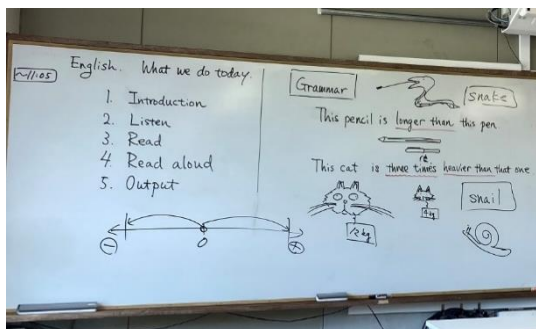 ~11:05
English. What we do today.
1. Introduction
2. Listen
3. Read
4. Read aloud
5. Output
0
Grammar
snake
This pencil is longer than this pen
This cat is three times heavier than that one
12 kg
4 kg
snail